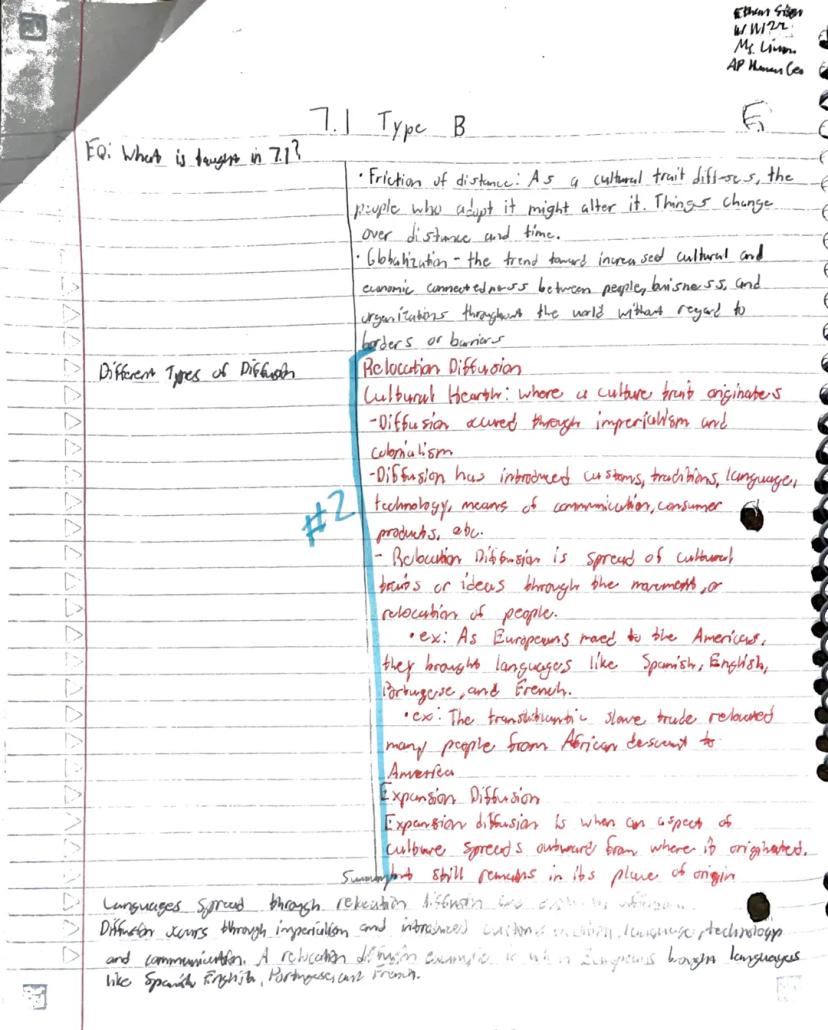 Ethan
Ms.
AP Human Geo
7.1 Type B
EQ: What is taught in 7.1?
• Friction of distance: As a cultural trait diffuses, the
people who adopt it might alter it. Things change
over distance and time.
• Globalization - the trend toward increased cultural and
economic connectedness between people, buisness, and
organizations throughout the world without regard to
borders or barriers
Different Types of Diffusion
Relocation Diffusion
Cultural Hearth: where a culture trait originates
-Diffusion occured through imperialism and
colonialism
-Diffusion has introduced customs, traditions, language,
technology, means of communication, consumer
products, etc.
#2
- Relocation Diffusion is spread of cultural
traits or ideas through the movement, or
relocation of people.
• ex: As Europeans moved to the Americas,
they brought languages like Spanish, English,
Portugese, and French.
• ex: The transatlantic slave trade relocated
many people from African descent to
America
Expansion Diffusion
Expansion diffusion is when an aspect of
culture spreads outward from where it originated.
but still remains in its place of origin
Summary
Languages spread through relocation diffusion and
Diffusion occurs through imperialism and introduced customs, tradition, language, technology
and communication. A relocation diffusion example is when Europeans bought languages
like Spanish, English, Portugese, and French.